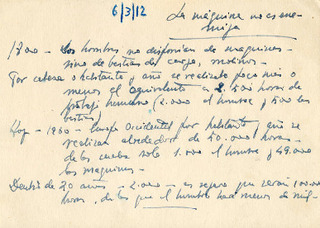 6/3/12
La máquina no es ene-
miga
1700 — Los hombres no disponían de maquinas
sino de bestias de carga, molinos.
Por cabeza o habitante y año se realizaba poco más o
menos el equivalente a 2.500 horas de
trabajo humano (2.000 el hombre y 500 las
bestias)
Hoy - 1960 — Europa Occidental por habitante, año se
realizan alrededor de 50.000 horas —
de las cuales solo 1.000 el hombre y 49.000
las maquinas —
Dentro de 20 años — 2.000 — es seguro que serán 100.000
horas, de las que el hombre hará menos de mil —